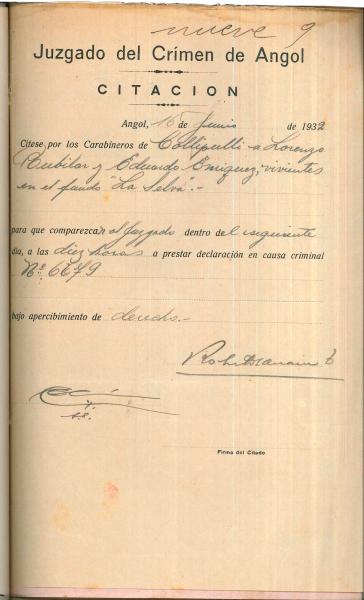 nueve 9
Juzgado del Crímen de Angol
CITACION
Angol, 16 de Junio de 1932
Cítese por los Carabineros de Collipulli a Lorenzo
Rubilar y Eduardo Enriquez, vivientes
en el fundo "La Selva".-
para que comparezcan al Juzgado dentro del siguiente
día, a las diez horas a prestar declaración en causa criminal
Nº 6679
bajo apercibimiento de derecho.-
Firma del Citado